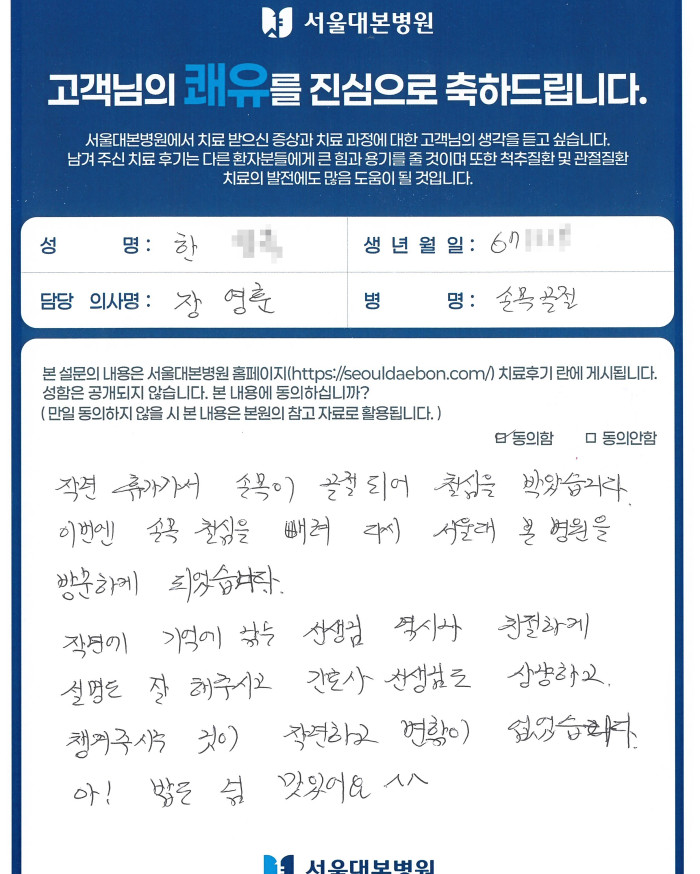 서울대본병원
고객님의 쾌유를 진심으로 축하드립니다.
서울대본병원에서 치료 받으신 증상과 치료 과정에 대한 고객님의 생각을 듣고 싶습니다.
남겨 주신 치료 후기는 다른 환자분들에게 큰 힘과 용기를 줄 것이며 또한 척추질환 및 관절질환
치료의 발전에도 많음 도움이 될 것입니다.
성 명 : 한
생 년 월 일 : 67
담당 의사명 : 장영훈
병 명 : 손목골절
본 설문의 내용은 서울대본병원 홈페이지(https://seouldaebon.com/) 치료후기 란에 게시됩니다.
성함은 공개되지 않습니다. 본 내용에 동의하십니까?
( 만일 동의하지 않을 시 본 내용은 본원의 참고 자료로 활용됩니다. )
☑ 동의함 □ 동의안함
작년 휴가가서 손목이 골절되어 철심을 박았습니다.
이번엔 손목 철심을 빼려 다시 서울대 본 병원을
방문하게 되었습니다.
작년에 기억에 남는 선생님 역시나 친절하게
설명도 잘 해주시고 간호사 선생님도 상냥하고.
챙겨주시는 것이 작년하고 변함이 없었습니다.
아! 밥도 넘 맛있어요 ^^
서울대본병원